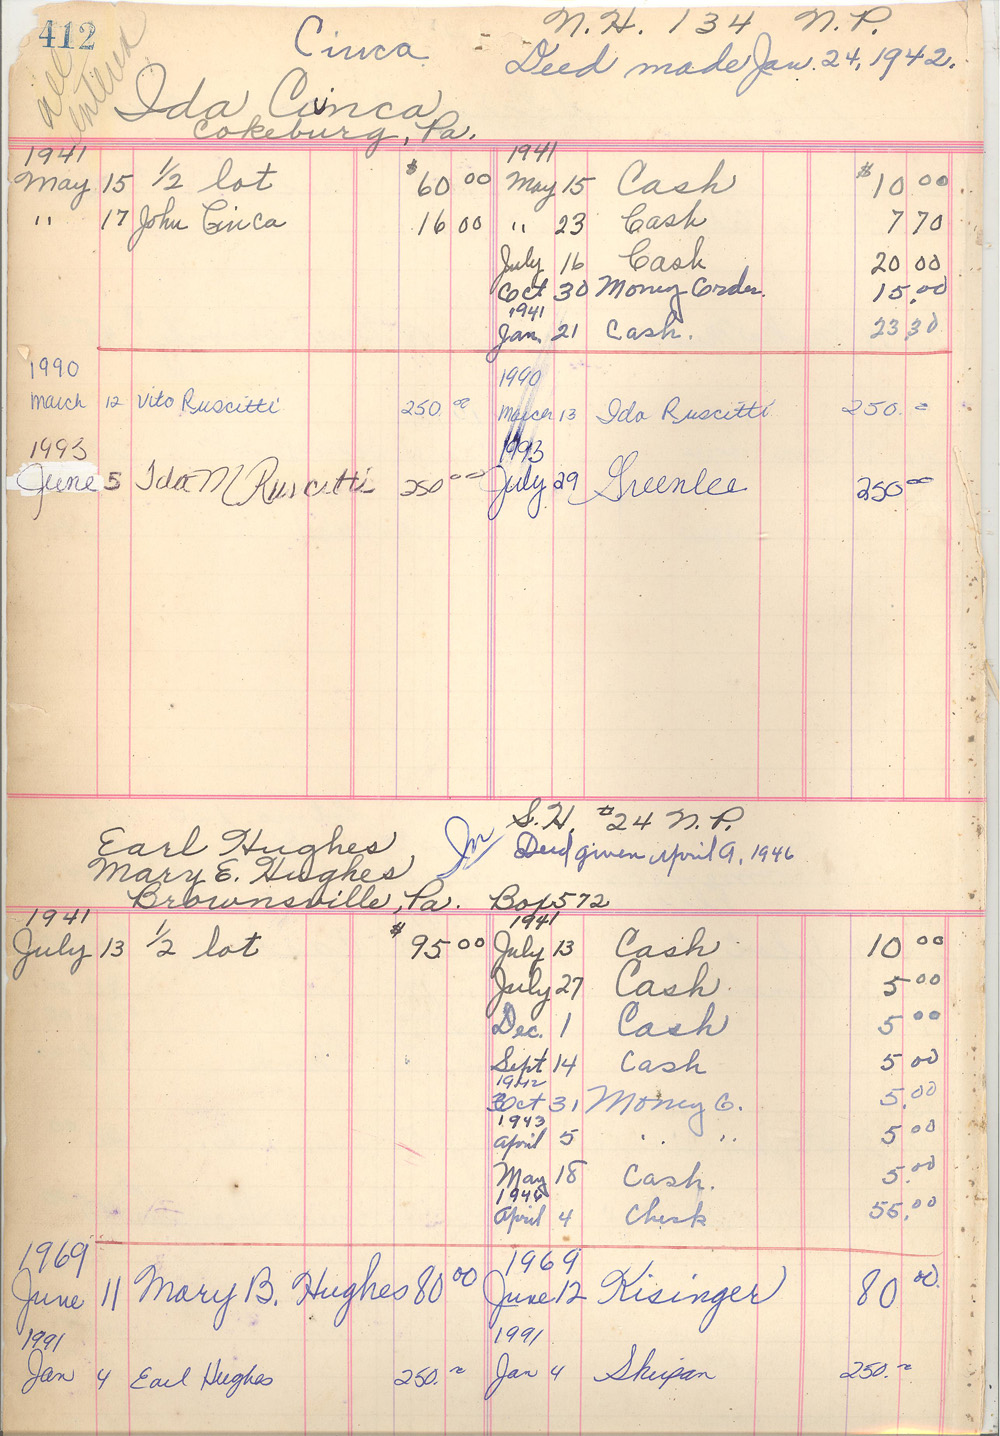 412
all entered
Cinca - N.H. 134 N.P.
Deed made Jan. 24, 1942.
Ida Cinca
Cokeburg, Pa.
1941 1941
May 15 1/2 lot $60 00 May 15 Cash $10 00
" 17 John Cinca 16 00 " 23 Cash 7 70
July 16 Cash 20 00
Oct 30 Money Order. 15.00
1941
Jan. 21 Cash. 23 30
1990 1990
March 12 Vito Ruscitti 250.00 March 13 Ida Ruscitti 250.00
1993 1993
June 5 Ida M Ruscitti 250 00 July 29 Greenlee 250 00
S.H. #24 N.P.
Earl Hughes Deed given April 9, 1946
Mary E. Hughes
Brownsville, Pa. Box 572
1941 1941
July 13 1/2 lot $95 00 July 13 Cash 10 00
July 27 Cash. 5 00
Dec. 1 Cash 5 00
Sept 14 Cash 5 00
1942
Oct 31 Money O. 5.00
1943
April 5 " " 5 00
May 18 Cash. 5.00
1946
April 4 Check 55.00
1969 1969
June 11 Mary B. Hughes 80 00 June 12 Kisinger 80 00
1991 1991
Jan 4 Earl Hughes 250.00 Jan 4 Skirpan 250.00